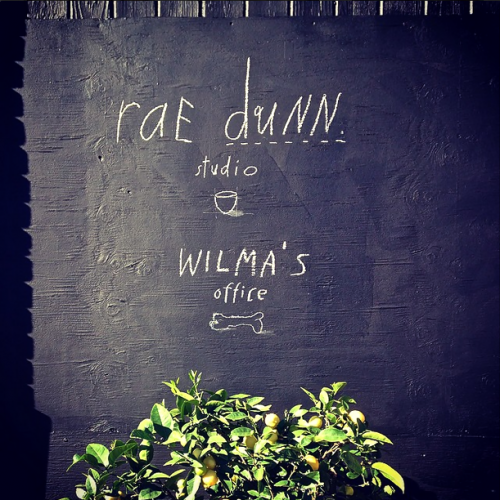 raE dunn.
studio
WILMA'S
office